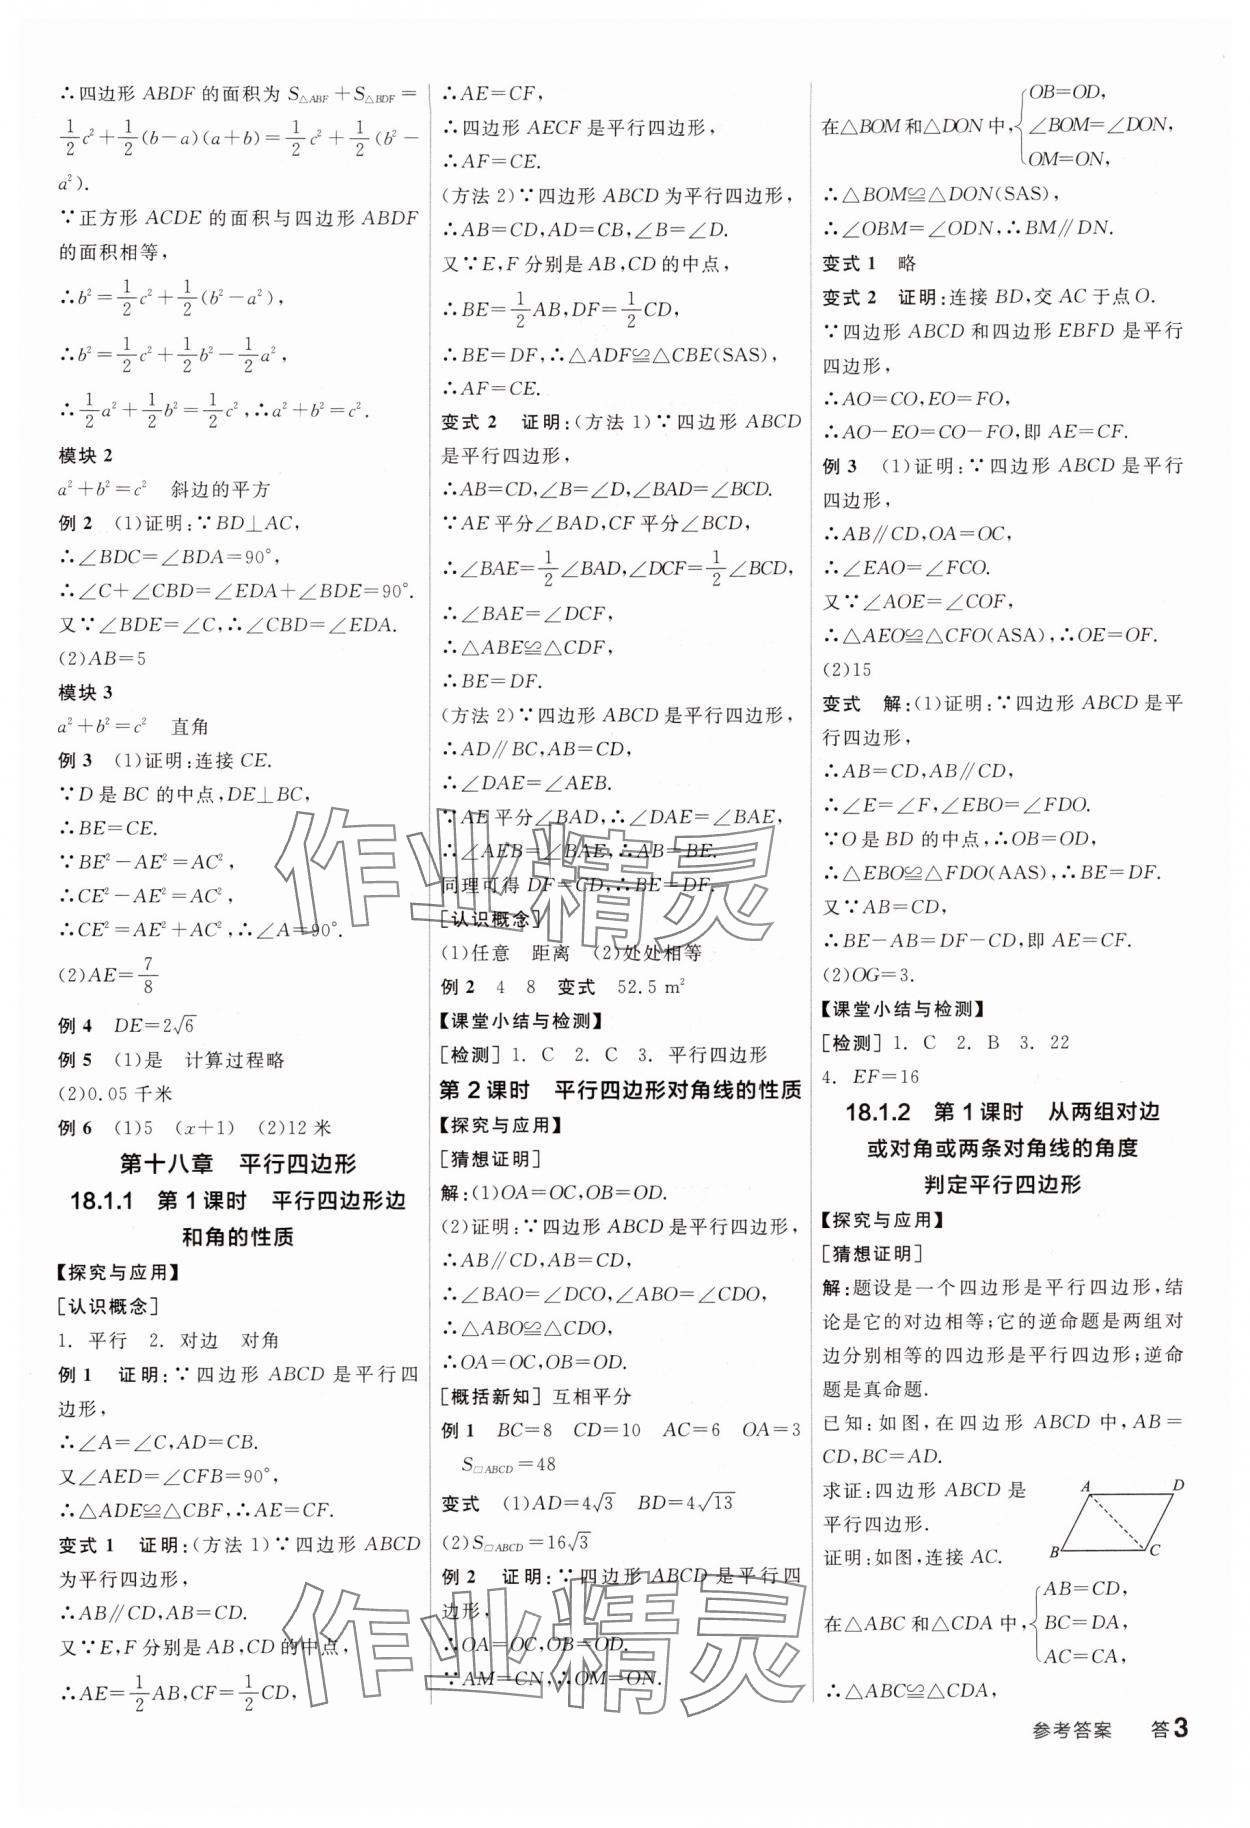 ∴四边形 ABDF 的面积为 S△ABF＋S△BDF＝
1/2c²＋1/2(b－a)(a＋b)＝1/2c²＋1/2(b²－
a²).
∵正方形 ACDE 的面积与四边形 ABDF
的面积相等，
∴b²＝1/2c²＋1/2(b²－a²)，
∴b²＝1/2c²＋1/2b²－1/2a²，
∴1/2a²＋1/2b²＝1/2c²，∴a²＋b²＝c².
模块 2
a²＋b²＝c²　斜边的平方
例 2　(1)证明：∵BD⊥AC，
∴∠BDC＝∠BDA＝90°，
∴∠C＋∠CBD＝∠EDA＋∠BDE＝90°.
又∵∠BDE＝∠C，∴∠CBD＝∠EDA.
(2)AB＝5
模块 3
a²＋b²＝c²　直角
例 3　(1)证明：连接 CE.
∵D 是 BC 的中点，DE⊥BC，
∴BE＝CE.
∵BE²－AE²＝AC²，
∴CE²－AE²＝AC²，
∴CE²＝AE²＋AC²，∴∠A＝90°.
(2)AE＝7/8
例 4　DE＝2√6
例 5　(1)是　计算过程略
(2)0.05 千米
例 6　(1)5　(x＋1)　(2)12 米
第十八章　平行四边形
18.1.1　第 1 课时　平行四边形边
和角的性质
【探究与应用】
[认识概念]
1. 平行　2. 对边　对角
例 1　证明：∵四边形 ABCD 是平行四
边形，
∴∠A＝∠C，AD＝CB.
又∠AED＝∠CFB＝90°，
∴△ADE≌△CBF，∴AE＝CF.
变式 1　证明：(方法 1)∵四边形 ABCD
为平行四边形，
∴AB∥CD，AB＝CD.
又∵E，F 分别是 AB，CD 的中点，
∴AE＝1/2AB，CF＝1/2CD，
∴AE＝CF，
∴四边形 AECF 是平行四边形，
∴AF＝CE.
(方法 2)∵四边形 ABCD 为平行四边形，
∴AB＝CD，AD＝CB，∠B＝∠D.
又∵E，F 分别是 AB，CD 的中点，
∴BE＝1/2AB，DF＝1/2CD，
∴BE＝DF，∴△ADF≌△CBE(SAS)，
∴AF＝CE.
变式 2　证明：(方法 1)∵四边形 ABCD
是平行四边形，
∴AB＝CD，∠B＝∠D，∠BAD＝∠BCD.
∵AE 平分∠BAD，CF 平分∠BCD，
∴∠BAE＝1/2∠BAD，∠DCF＝1/2∠BCD，
∴∠BAE＝∠DCF，
∴△ABE≌△CDF，
∴BE＝DF.
(方法 2)∵四边形 ABCD 是平行四边形，
∴AD∥BC，AB＝CD，
∴∠DAE＝∠AEB.
∵AE 平分∠BAD，∴∠DAE＝∠BAE，
∴∠AEB＝∠BAE，∴AB＝BE.
同理可得 DF＝CD，∴BE＝DF.
[认识概念]
(1)任意　距离　(2)处处相等
例 2　4　8　变式　52.5 m²
【课堂小结与检测】
[检测] 1. C　2. C　3. 平行四边形
第 2 课时　平行四边形对角线的性质
【探究与应用】
[猜想证明]
解：(1)OA＝OC，OB＝OD.
(2)证明：∵四边形 ABCD 是平行四边形，
∴AB∥CD，AB＝CD，
∴∠BAO＝∠DCO，∠ABO＝∠CDO，
∴△ABO≌△CDO，
∴OA＝OC，OB＝OD.
[概括新知] 互相平分
例 1　BC＝8　CD＝10　AC＝6　OA＝3
S▱ABCD＝48
变式　(1)AD＝4√3　BD＝4√13
(2)S▱ABCD＝16√3
例 2　证明：∵四边形 ABCD 是平行四
边形，
∴OA＝OC，OB＝OD.
∵AM＝CN，∴OM＝ON.
在△BOM 和△DON 中，{OB＝OD，
∠BOM＝∠DON，
OM＝ON，
∴△BOM≌△DON(SAS)，
∴∠OBM＝∠ODN，∴BM∥DN.
变式 1　略
变式 2　证明：连接 BD，交 AC 于点 O.
∵四边形 ABCD 和四边形 EBFD 是平行
四边形，
∴AO＝CO，EO＝FO，
∴AO－EO＝CO－FO，即 AE＝CF.
例 3　(1)证明：∵四边形 ABCD 是平行
四边形，
∴AB∥CD，OA＝OC，
∴∠EAO＝∠FCO.
又∵∠AOE＝∠COF，
∴△AEO≌△CFO(ASA)，∴OE＝OF.
(2)15
变式　解：(1)证明：∵四边形 ABCD 是平
行四边形，
∴AB＝CD，AB∥CD，
∴∠E＝∠F，∠EBO＝∠FDO.
∵O 是 BD 的中点，∴OB＝OD，
∴△EBO≌△FDO(AAS)，∴BE＝DF.
又∵AB＝CD，
∴BE－AB＝DF－CD，即 AE＝CF.
(2)OG＝3.
【课堂小结与检测】
[检测] 1. C　2. B　3. 22
4. EF＝16
18.1.2　第 1 课时　从两组对边
或对角或两条对角线的角度
判定平行四边形
【探究与应用】
[猜想证明]
解：题设是一个四边形是平行四边形，结
论是它的对边相等；它的逆命题是两组对
边分别相等的四边形是平行四边形；逆命
题是真命题.
已知：如图，在四边形 ABCD 中，AB＝
CD，BC＝AD.
求证：四边形 ABCD 是
平行四边形.
证明：如图，连接 AC.
A D
B C
在△ABC 和△CDA 中，{AB＝CD，
BC＝DA，
AC＝CA，
∴△ABC≌△CDA，
参考答案　答3
作业精灵
作业精灵